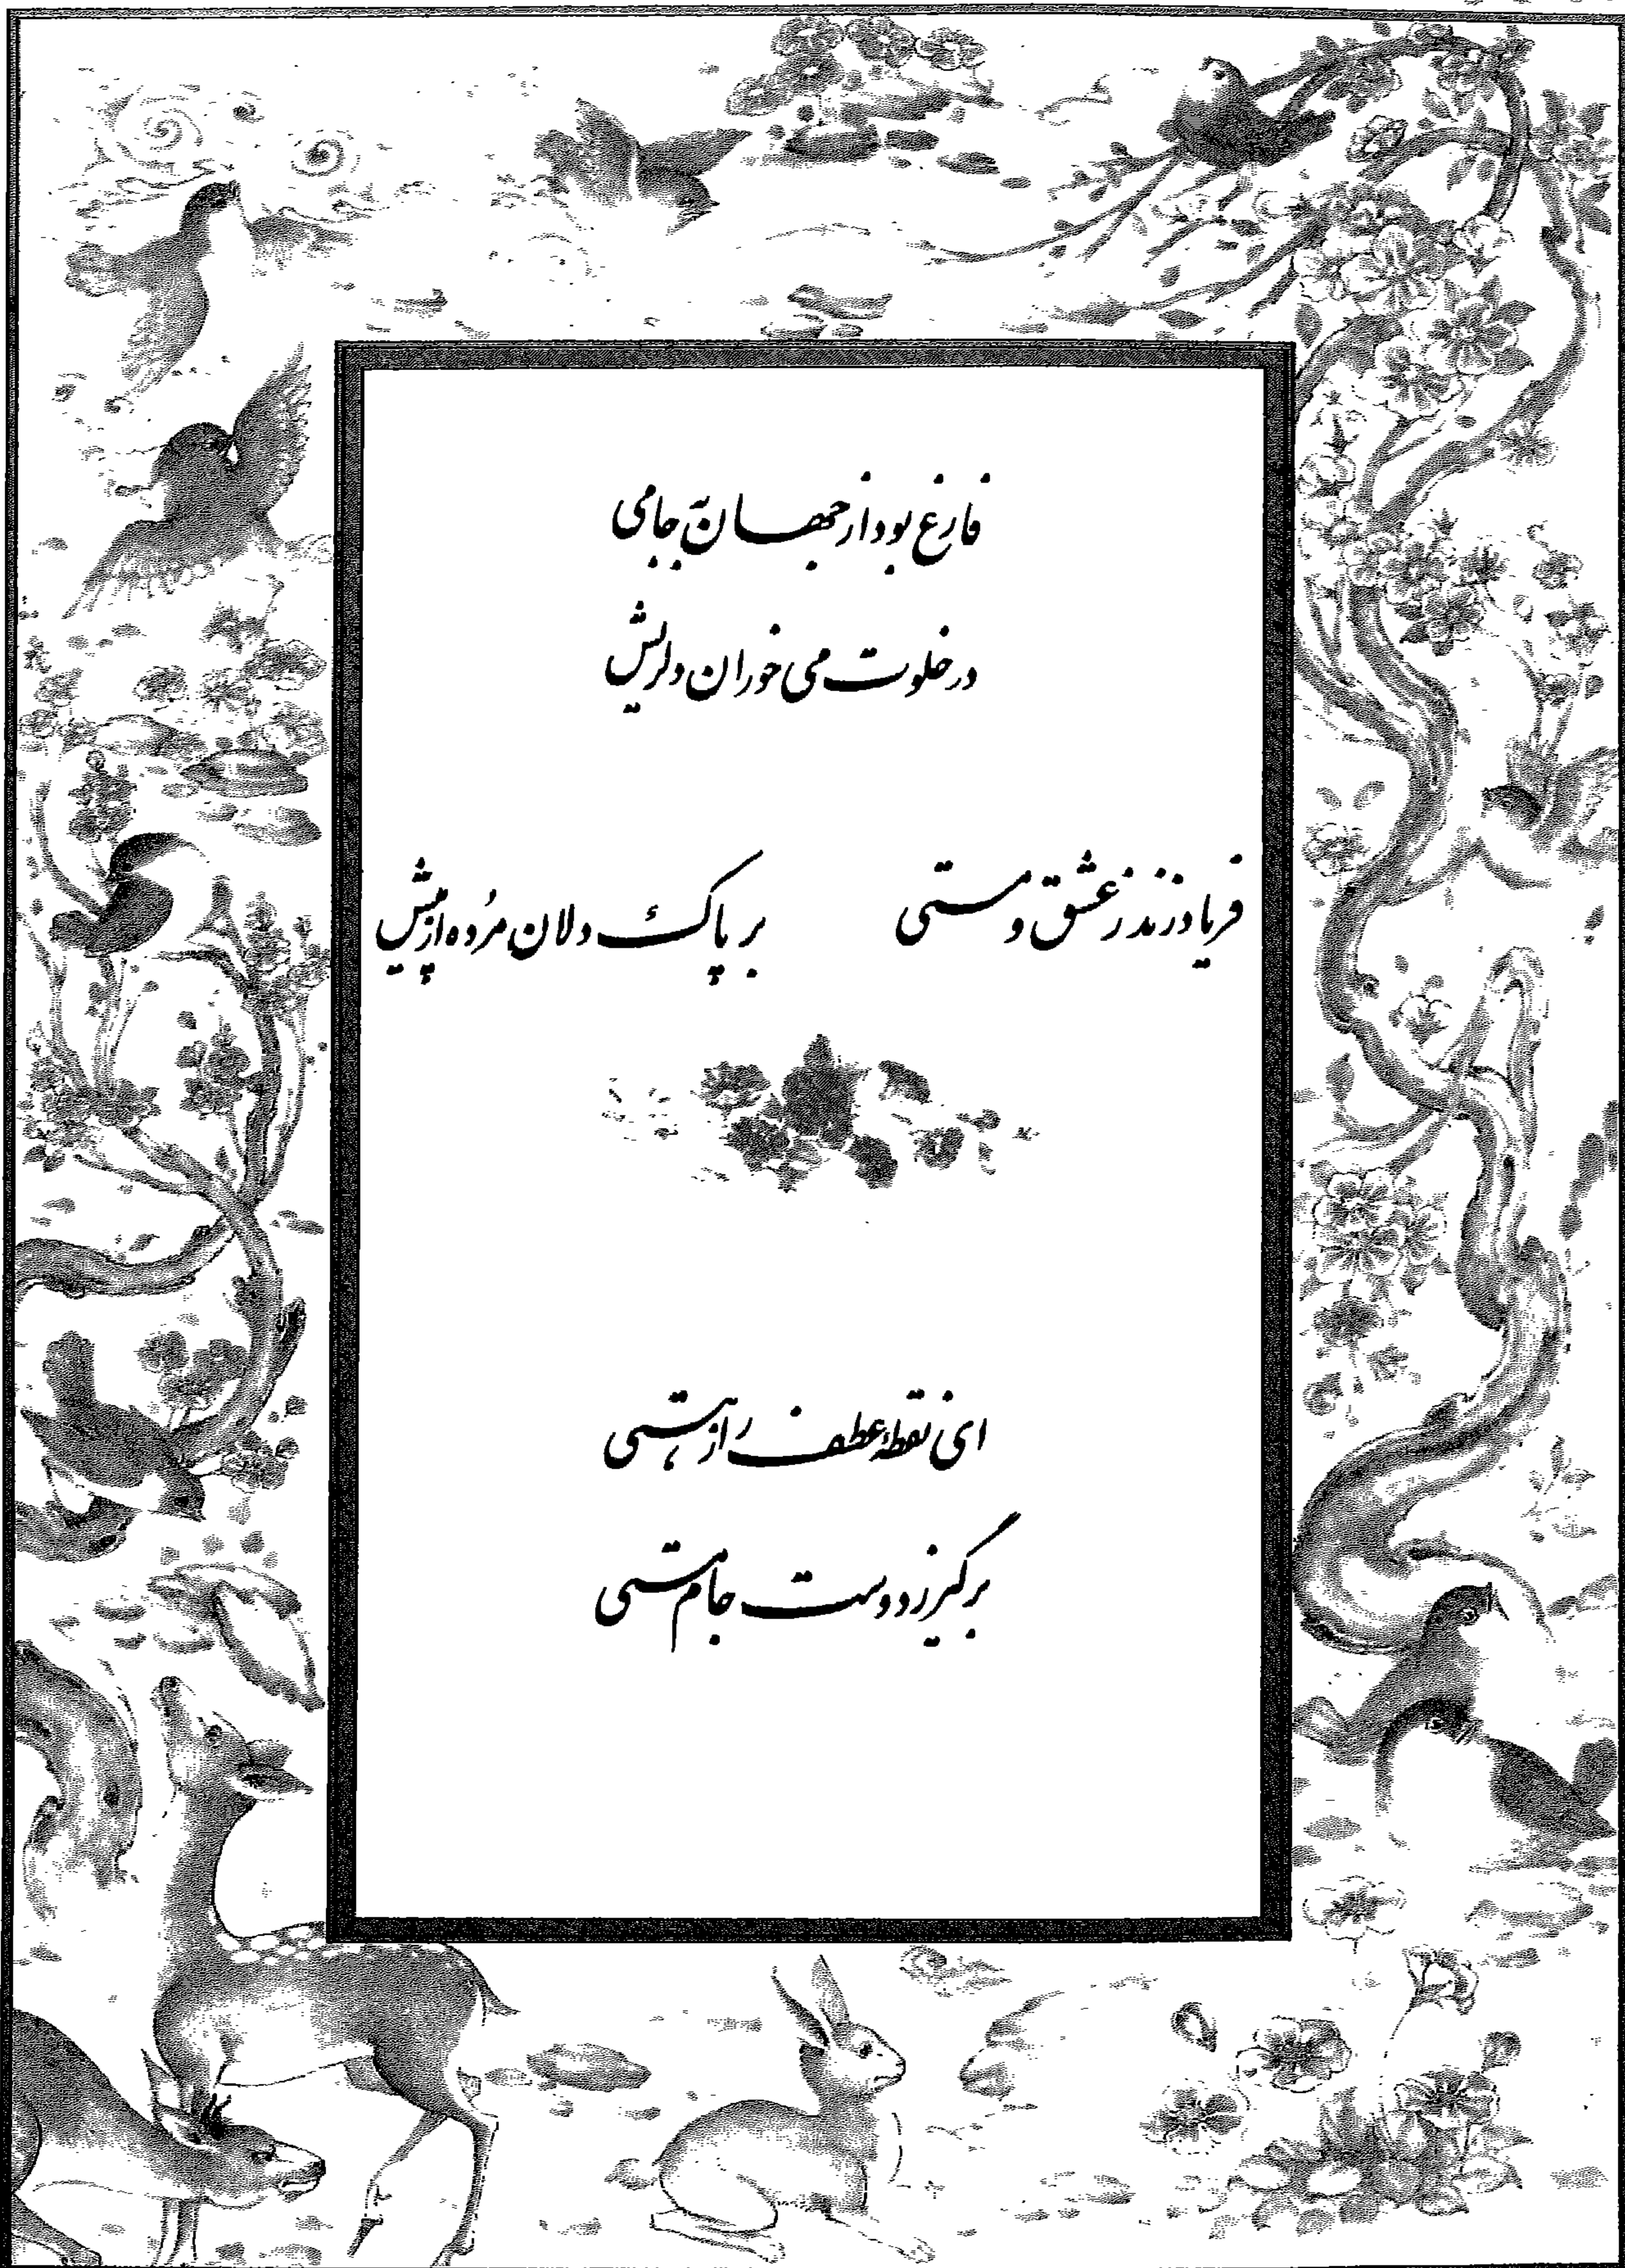 فارغ بود از جهان به جامی
در خلوت می خوران دلریش
فریاد زند ز عشق و مستی بر پاک دلان مُرده از پیش
ای نقطۀ عطف راز هستی
برگیر ز دوست جام مستی